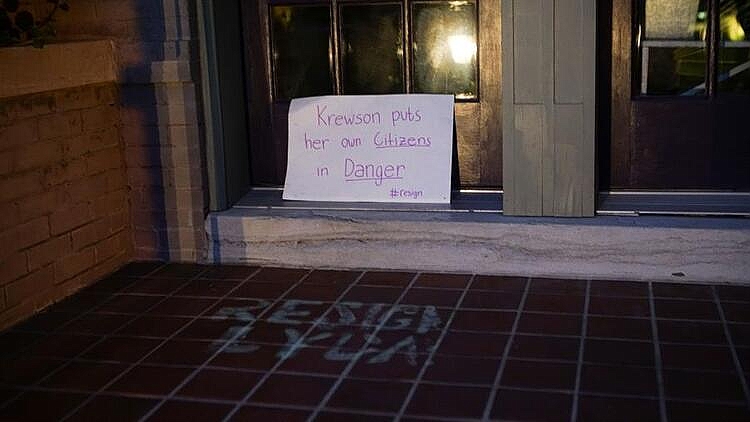 Krewson puts
her own Citizens
in Danger
#resign
RESIGN
LYDA